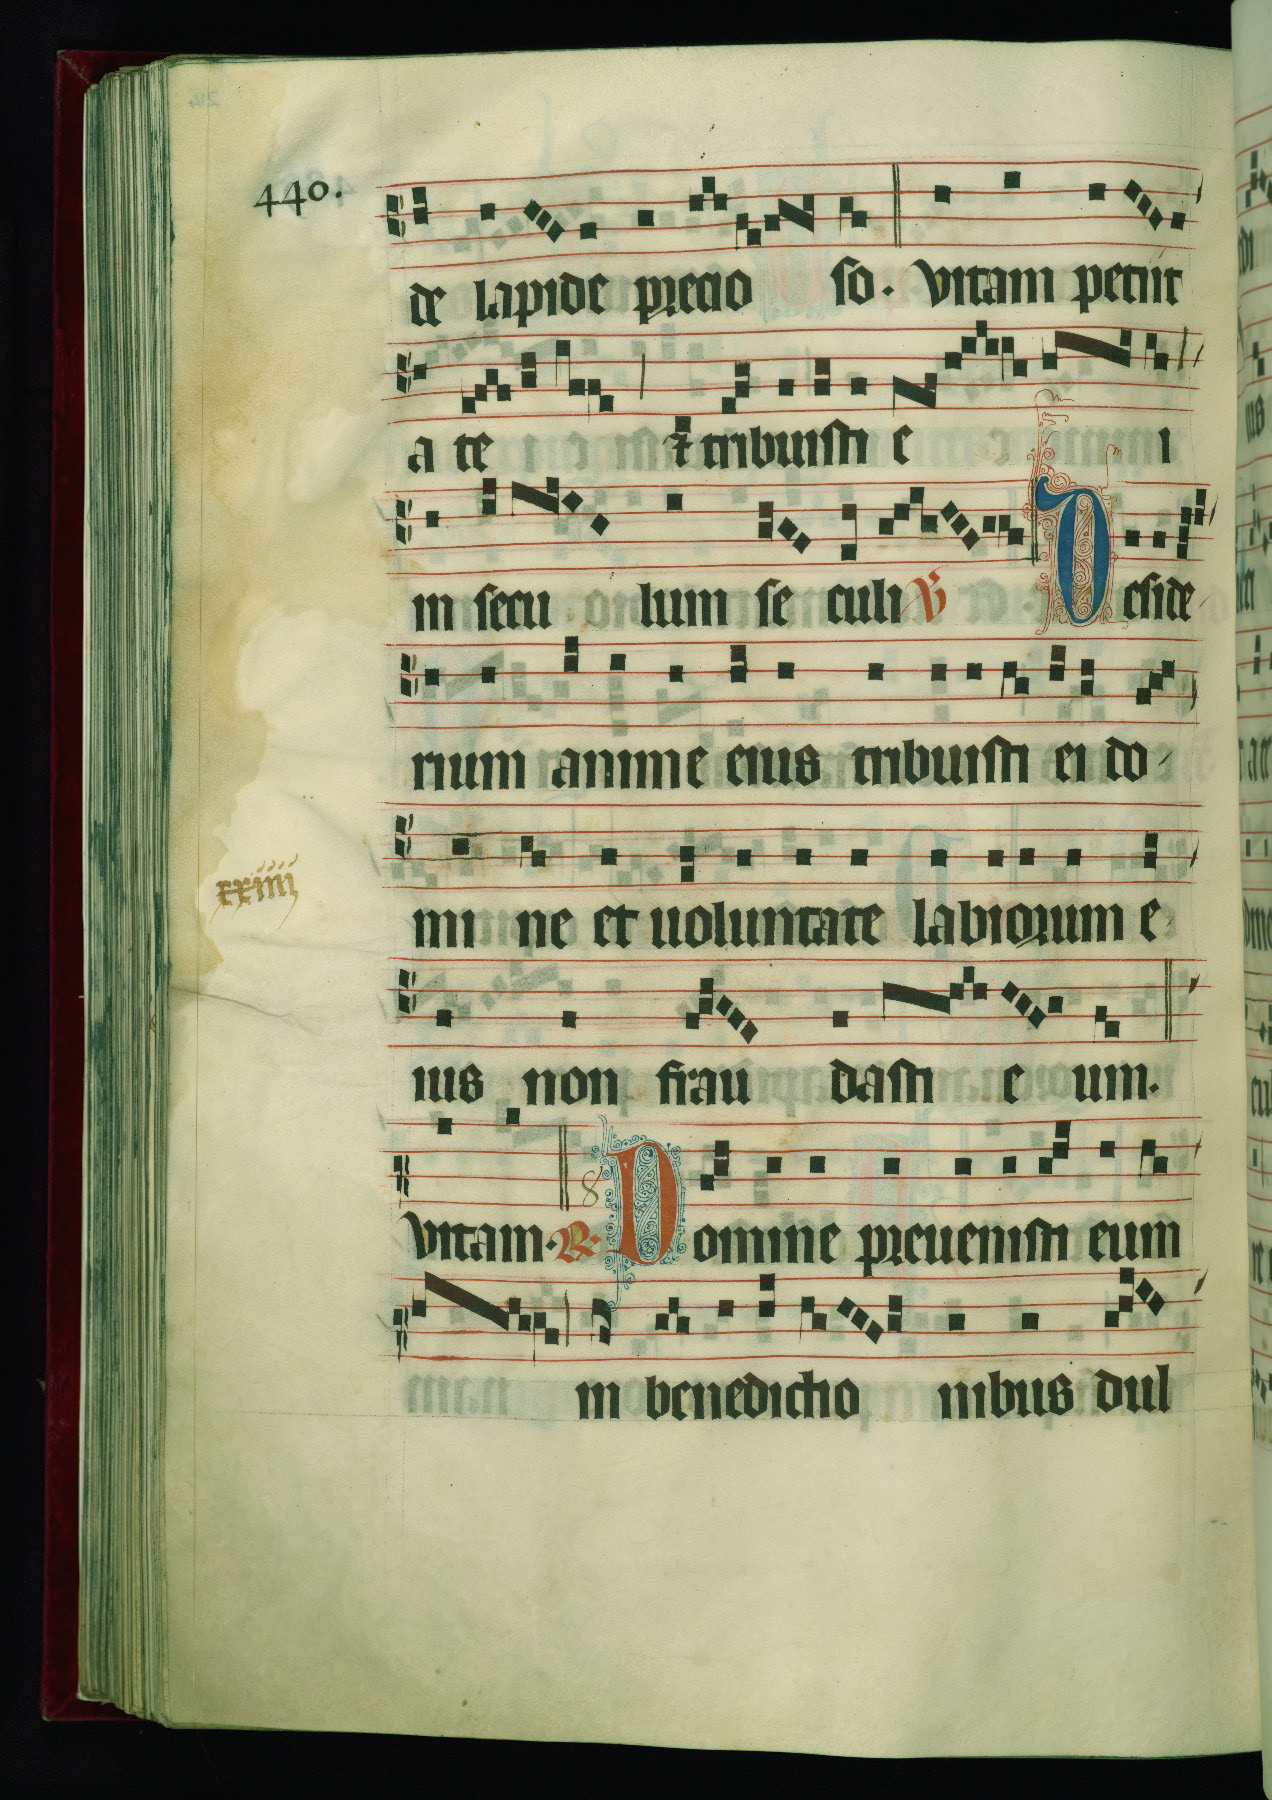 440.
de lapide precio so. Vitam petiit
a te ⁊ tribuisti e i
in secu lum se culi ℣ Deside
rium anime eius tribuisti ei do-
mi ne et uoluntate labiorum e-
xxiiii
ius non frau dasti e um.
Vitam. ℟. 8 Domine preuenisti eum
in benedictio nibus dul